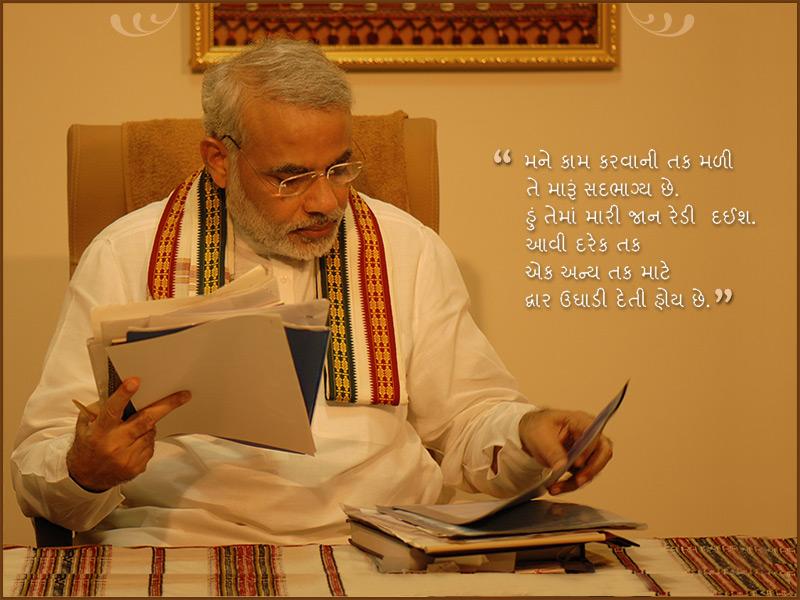 “ મને કામ કરવાની તક મળી
તે મારૂં સદભાગ્ય છે.
હું તેમાં મારી જાન રેડી દઈશ.
આવી દરેક તક
એક અન્ય તક માટે
દ્વાર ઉઘાડી દેતી હોય છે. ”